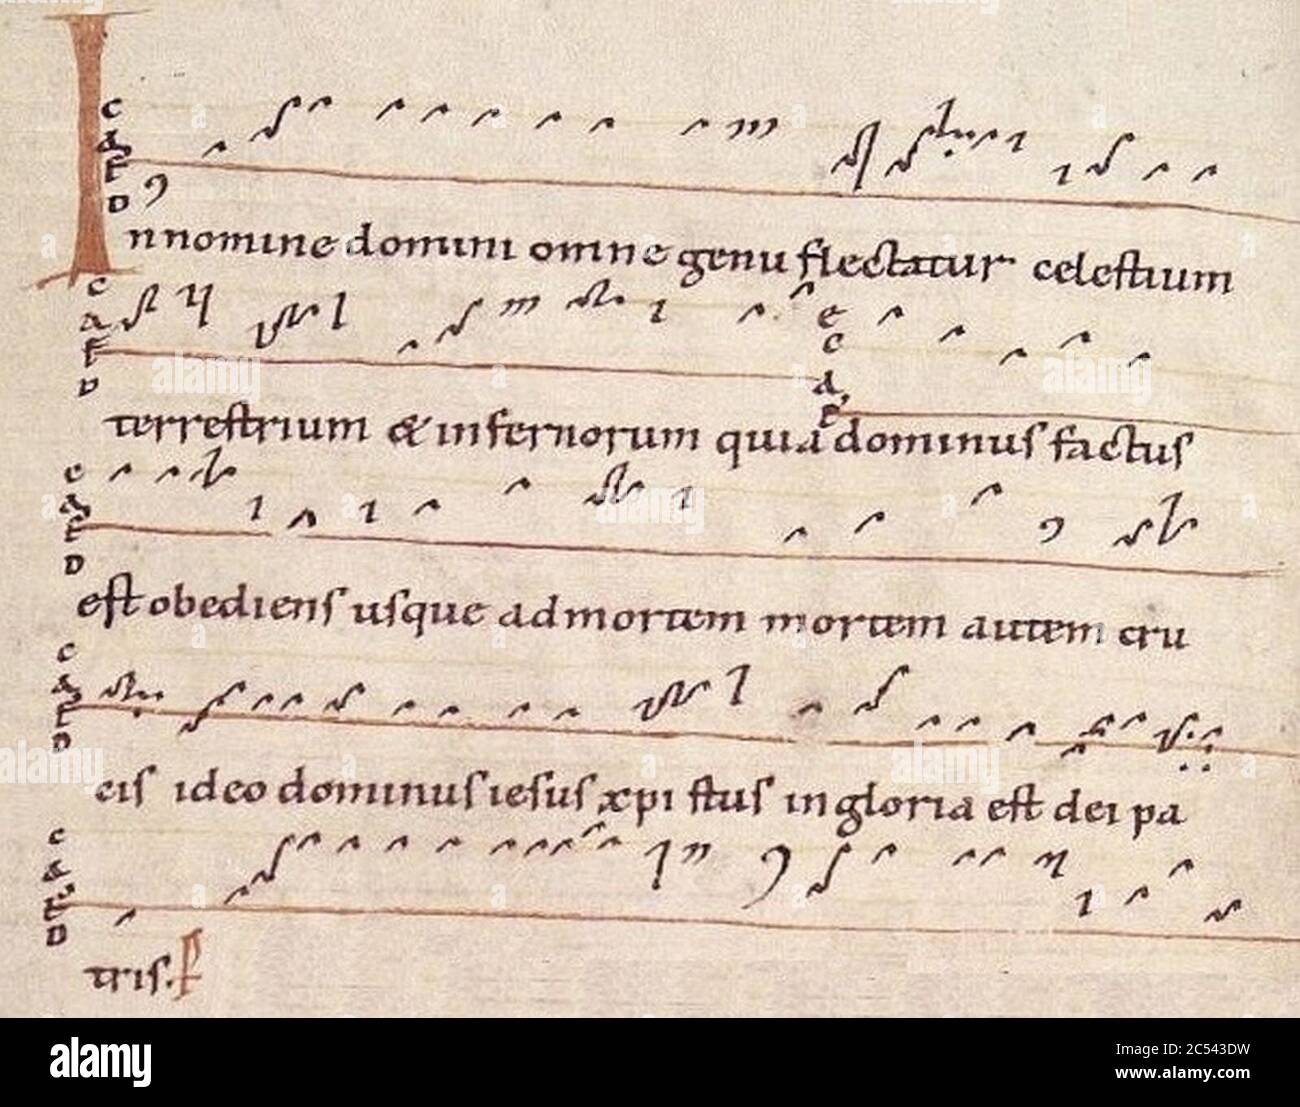 In nomine domini omne genu flectatur celestium
terrestrium & infernorum quia dominus factus
est obediens usque ad mortem mortem autem cru
cis ideo dominus iesus xpistus in gloria est dei pa
tris.
c
a
F
D
c
a
F
D
e
c
a
F
e
c
a
F
D
c
a
F
D
c
a
F
D
alamy
Image ID: 2C543DW
www.alamy.com